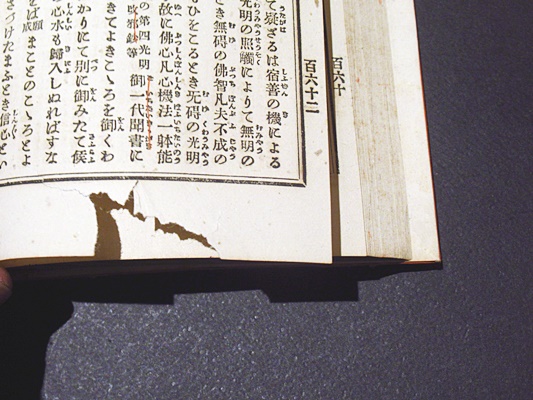 て疑ざるは宿善の機による
光明の照觸によりて無明の
とき無碍の佛智凡夫不成の
ひをとるとき无碍の光明
故に佛心凡心機法一躰能
の第四光明 御一代聞書に
改邪鈔等
きてよきこゝろを御くわ
かりにて別に御みたて候
心水も歸入しぬればすな
せば願 まことのこゝろとよ
成
さづけたまふとき信心とい
百六十二
百六十